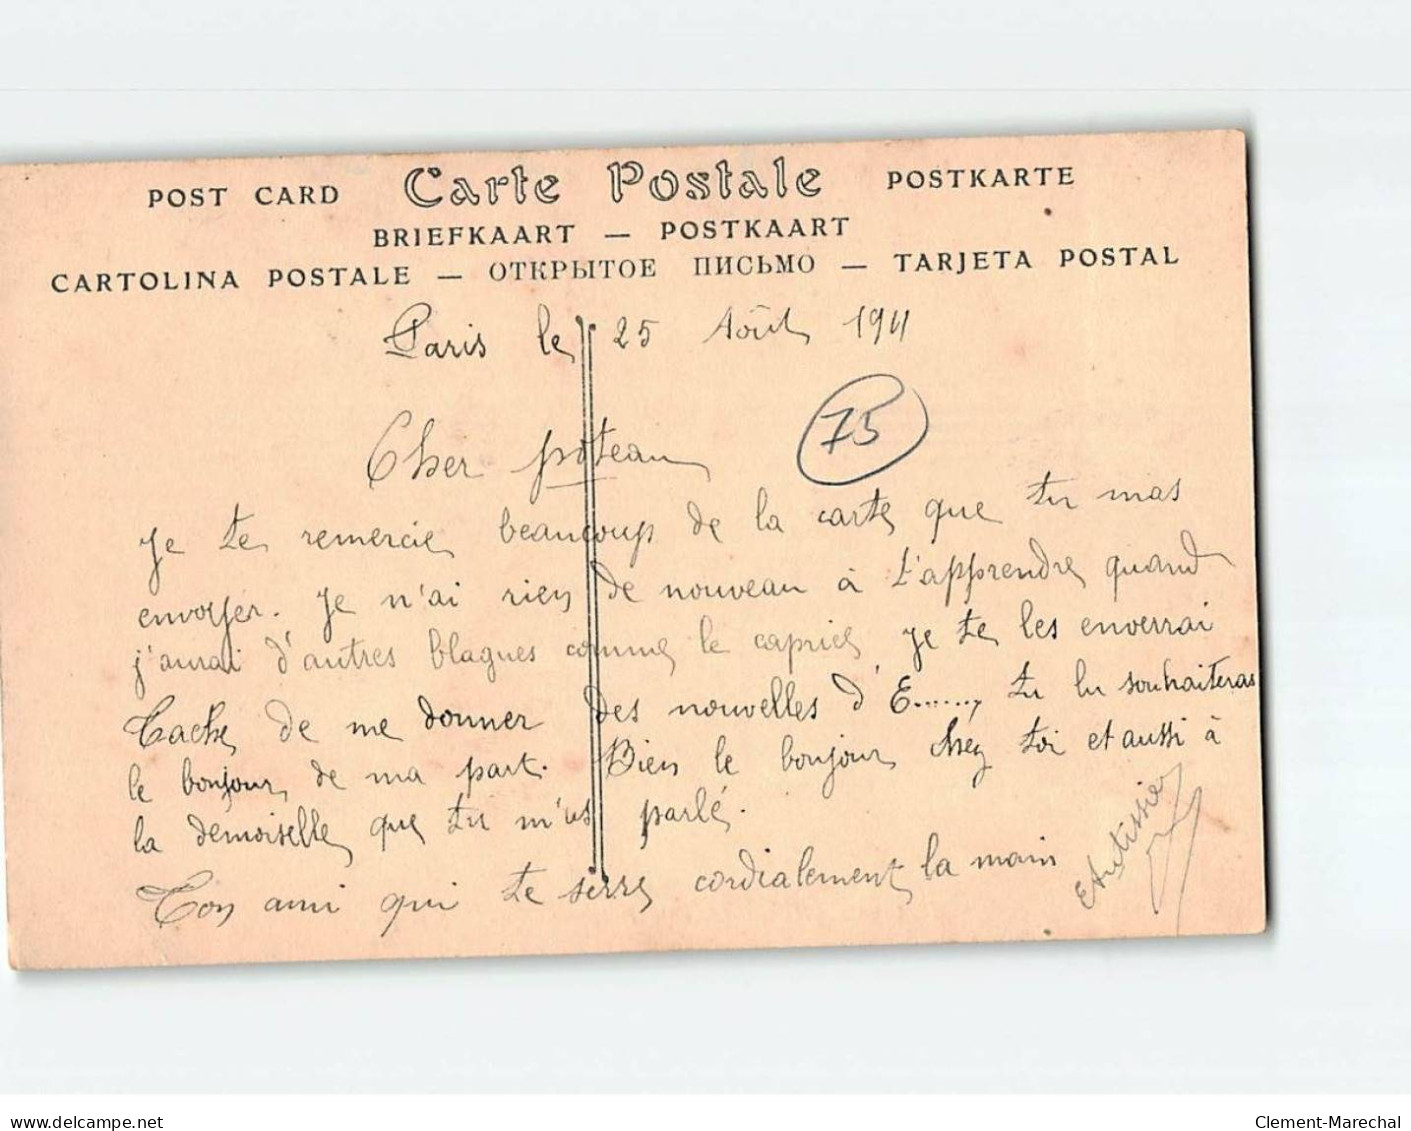 POST CARD Carte Postale POSTKARTE
BRIEFKAART — POSTKAART
CARTOLINA POSTALE — ОТКРЫТОЕ ПИСЬМО — TARJETA POSTAL
Paris le 25 Août 1911
75
Cher poteau
Je te remercie beaucoup de la carte que tu mas
envoyer. Je n'ai rien de nouveau à t'apprendre quand
j'aurai d'autres blagues comme le caprice je te les enverrai
Tache de me donner des nouvelles d'E......, tu lui souhaiteras
le bonjour de ma part. Bien le bonjour chez toi et aussi à
la demoiselle que tu m'as parlé.
Ton ami qui te serre cordialement la main
www.delcampe.net
Clement-Marechal